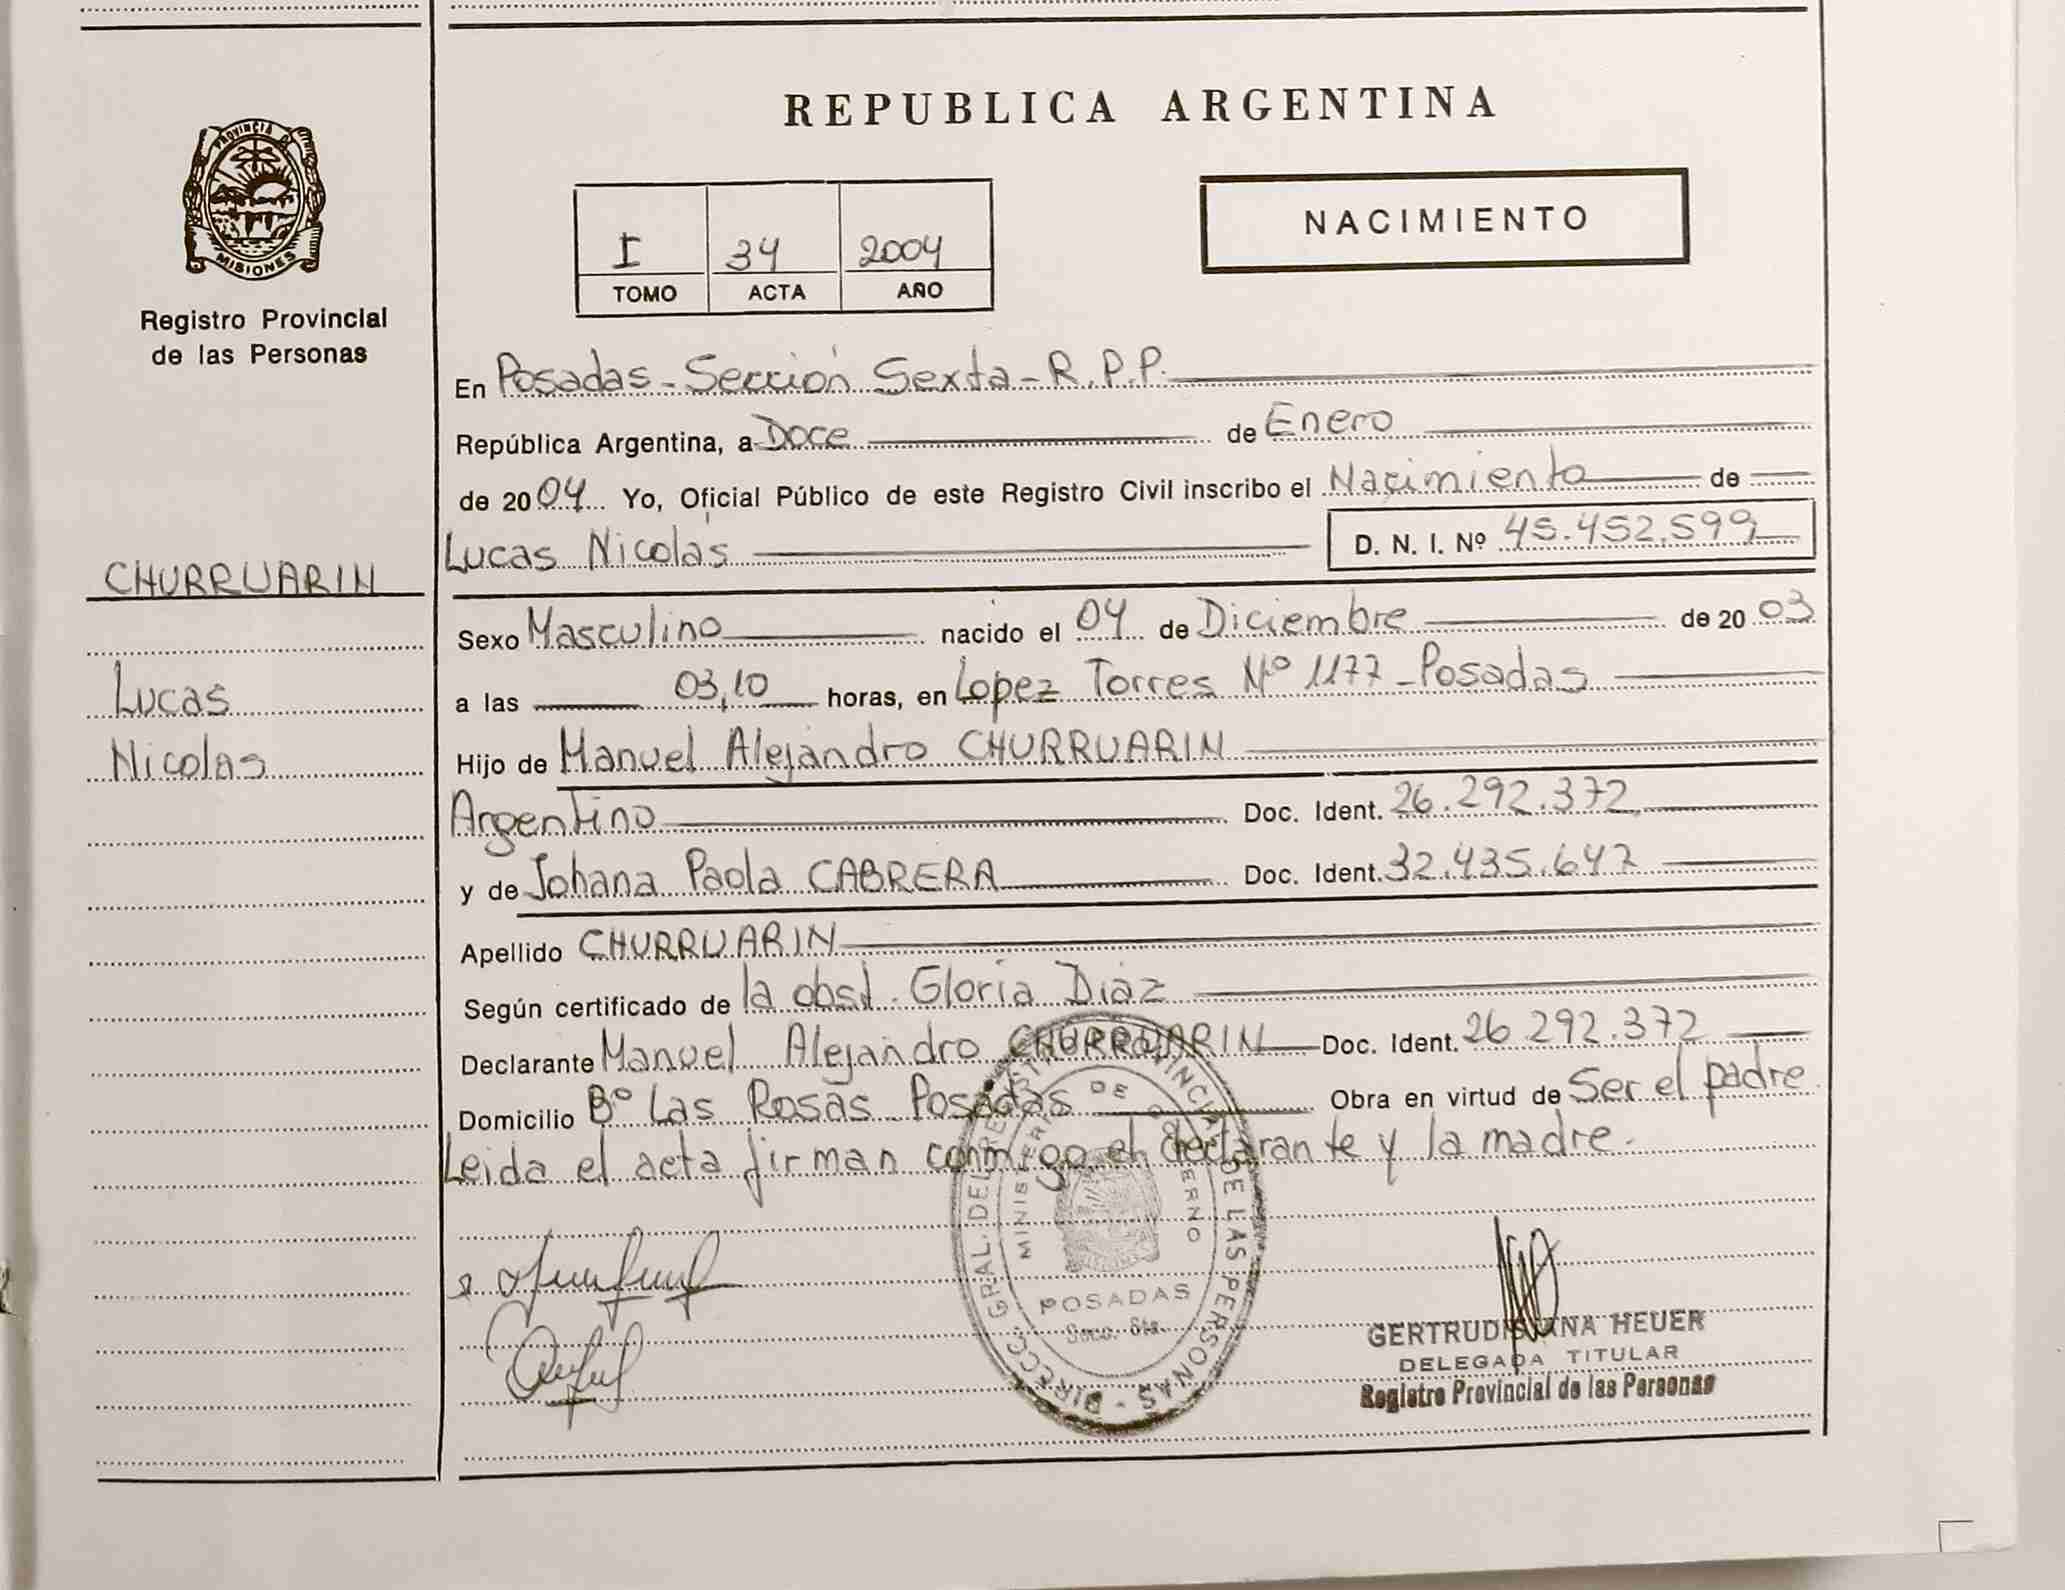 REPUBLICA ARGENTINA
PROVINCIA DE
MISIONES
Registro Provincial
de las Personas
NACIMIENTO
I 34 2004
TOMO ACTA AÑO
En Posadas - Sección Sexta - R.P.P.
República Argentina, a Doce de Enero
de 2004 Yo, Oficial Público de este Registro Civil inscribo el Nacimiento de
Lucas Nicolás D. N. I. Nº 45.452.599
CHURRUARIN
Lucas
Nicolas
Sexo Masculino nacido el 04 de Diciembre de 2003
a las 03,10 horas, en Lopez Torres Nº 1177 - Posadas
Hijo de Manuel Alejandro CHURRUARIN
Argentino Doc. Ident. 26.292.372
y de Johana Paola CABRERA Doc. Ident. 32.435.647
Apellido CHURRUARIN
Según certificado de la obst. Gloria Diaz
Declarante Manuel Alejandro CHURRUARIN Doc. Ident. 26.292.372
Domicilio Bº Las Rosas Posadas Obra en virtud de Ser el padre
Leida el acta firman conmigo el declarante y la madre.
DIRECC. GRAL. DEL REGISTRO PROVINCIAL DE LAS PERSONAS -
MINISTERIO DE GOBIERNO
POSADAS
Secc. 6ta.
HEUER
DELEGADA TITULAR
Registro Provincial de las Personas